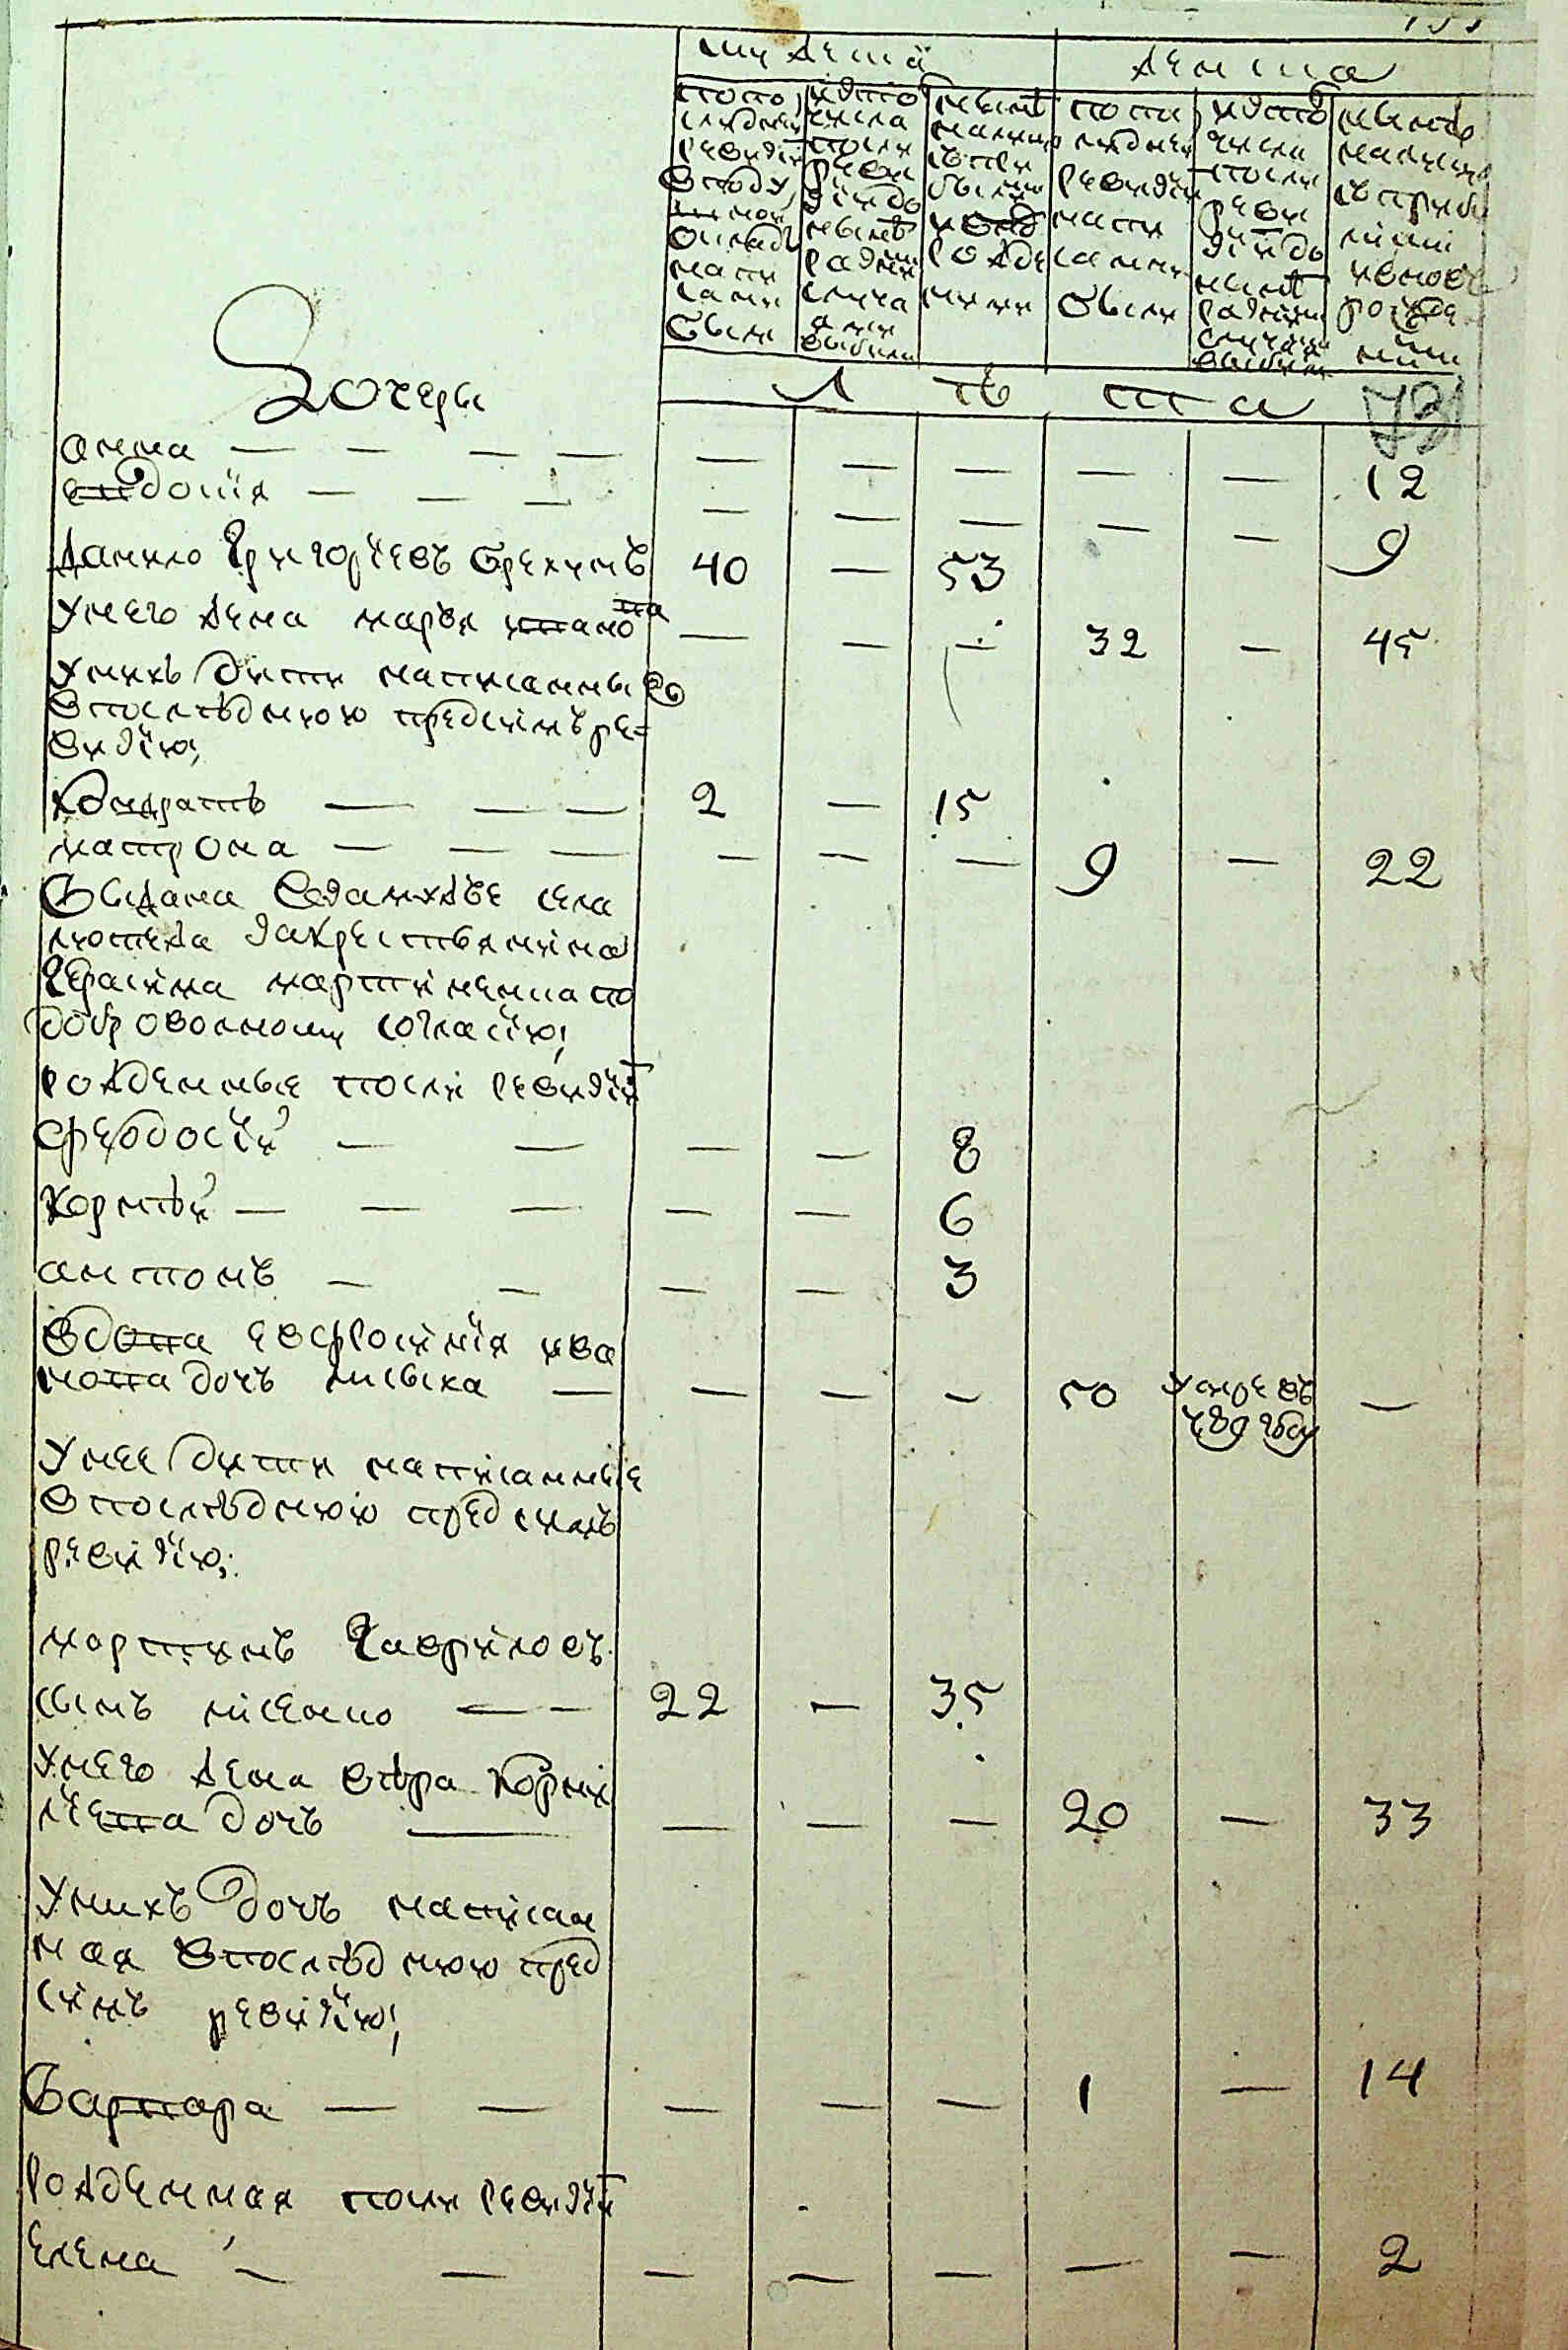 мужеска
женска
по по
следней
ревизіи
в поду
шной
оклад
напи
саны
были
изъ то
числа
посли
реви
зіи до
нынѣ
разны
случа
ями
выбыли
нынѣ
налицо
съ при
былы
и вно
рожде
ными
по по
следней
ревизіи
напи
саны
были
изъ того
числа
посли
реви
зіи до
нынѣ
разным
случаям
выбыли
нынѣ
налицо
съ прибы
лыми
и вновь
рожде
ными
Дочеры
л ѣ т а 73
анна — — — — — — — — — 12
евдокія — — — — — — — — 9
Данило Григорьевъ Грехунъ 40 — 53
у него жена марья ивановна — — — 32 — 45
у нихъ дити написанныя
в последнюю пред симъ ре=
визію;
Кондратъ — — — 2 — 15
матрона — — — — — — 9 — 22
выдана вдамкже села
лютежа за крестьянина
Герасима мартиненка по
доброволному согласію;
рожденные посли ревизіи
Феодосій — — — — 8
Корнѣй — — — — — 6
антонъ — — — — 3
вдова евфросинія ива
нова дочь лисыка — — — — 50 умре въ 789 году —
у нее дити написанные
в последнюю пред симъ
ревизію;
мартинъ Гавриловъ
сынъ лисенко — — 22 — 35
у него жена вѣра корни
лѣева дочь — — — — 20 — 33
у нихъ дочь написан
ная в последнюю пред
симъ ревизію;
Варвара — — — — — 1 — 14
рожденная посли ревизіи
елена — — — — — — — 2